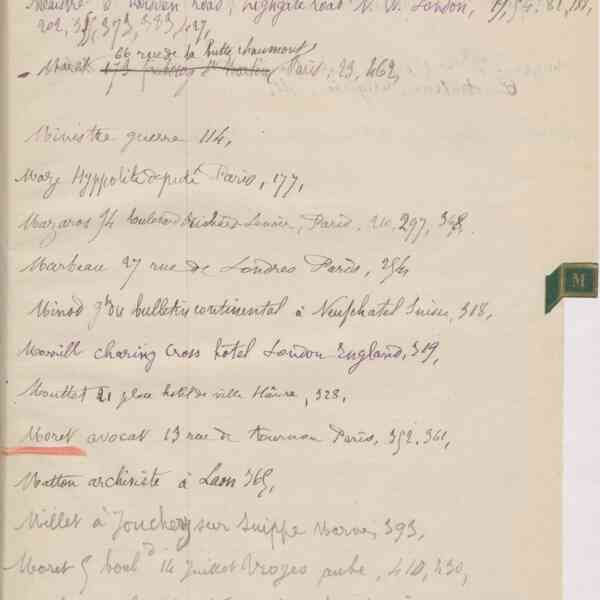 Road, Highgate Road N. W. London, 19, 54, 81, 181,
202, 373, 383, 427,
66 rue de la Butte chaumont
Paris, 23, 462,
Ministre guerre 114,
Maze Hyppolite deputé Paris, 177,
Mazaros 94 boulevard Richard-Lenoir, Paris, 210, 297, 398,
Marbeau 27 rue de Londres Paris, 254,
Minod gt du bulletin continental à Neufchatel Suisse, 318,
charing Cross hotel London England, 319,
Mouttet 21 place hotel de ville Hâvre, 328,
Moret avocat 13 rue de tournon Paris, 352, 361,
Matton archiviste à Laon 365,
Millet à Jonchery sur Suippe Marne, 393,
Moret 5 bould 14 Juillet Troyes aube, 410, 430,
M